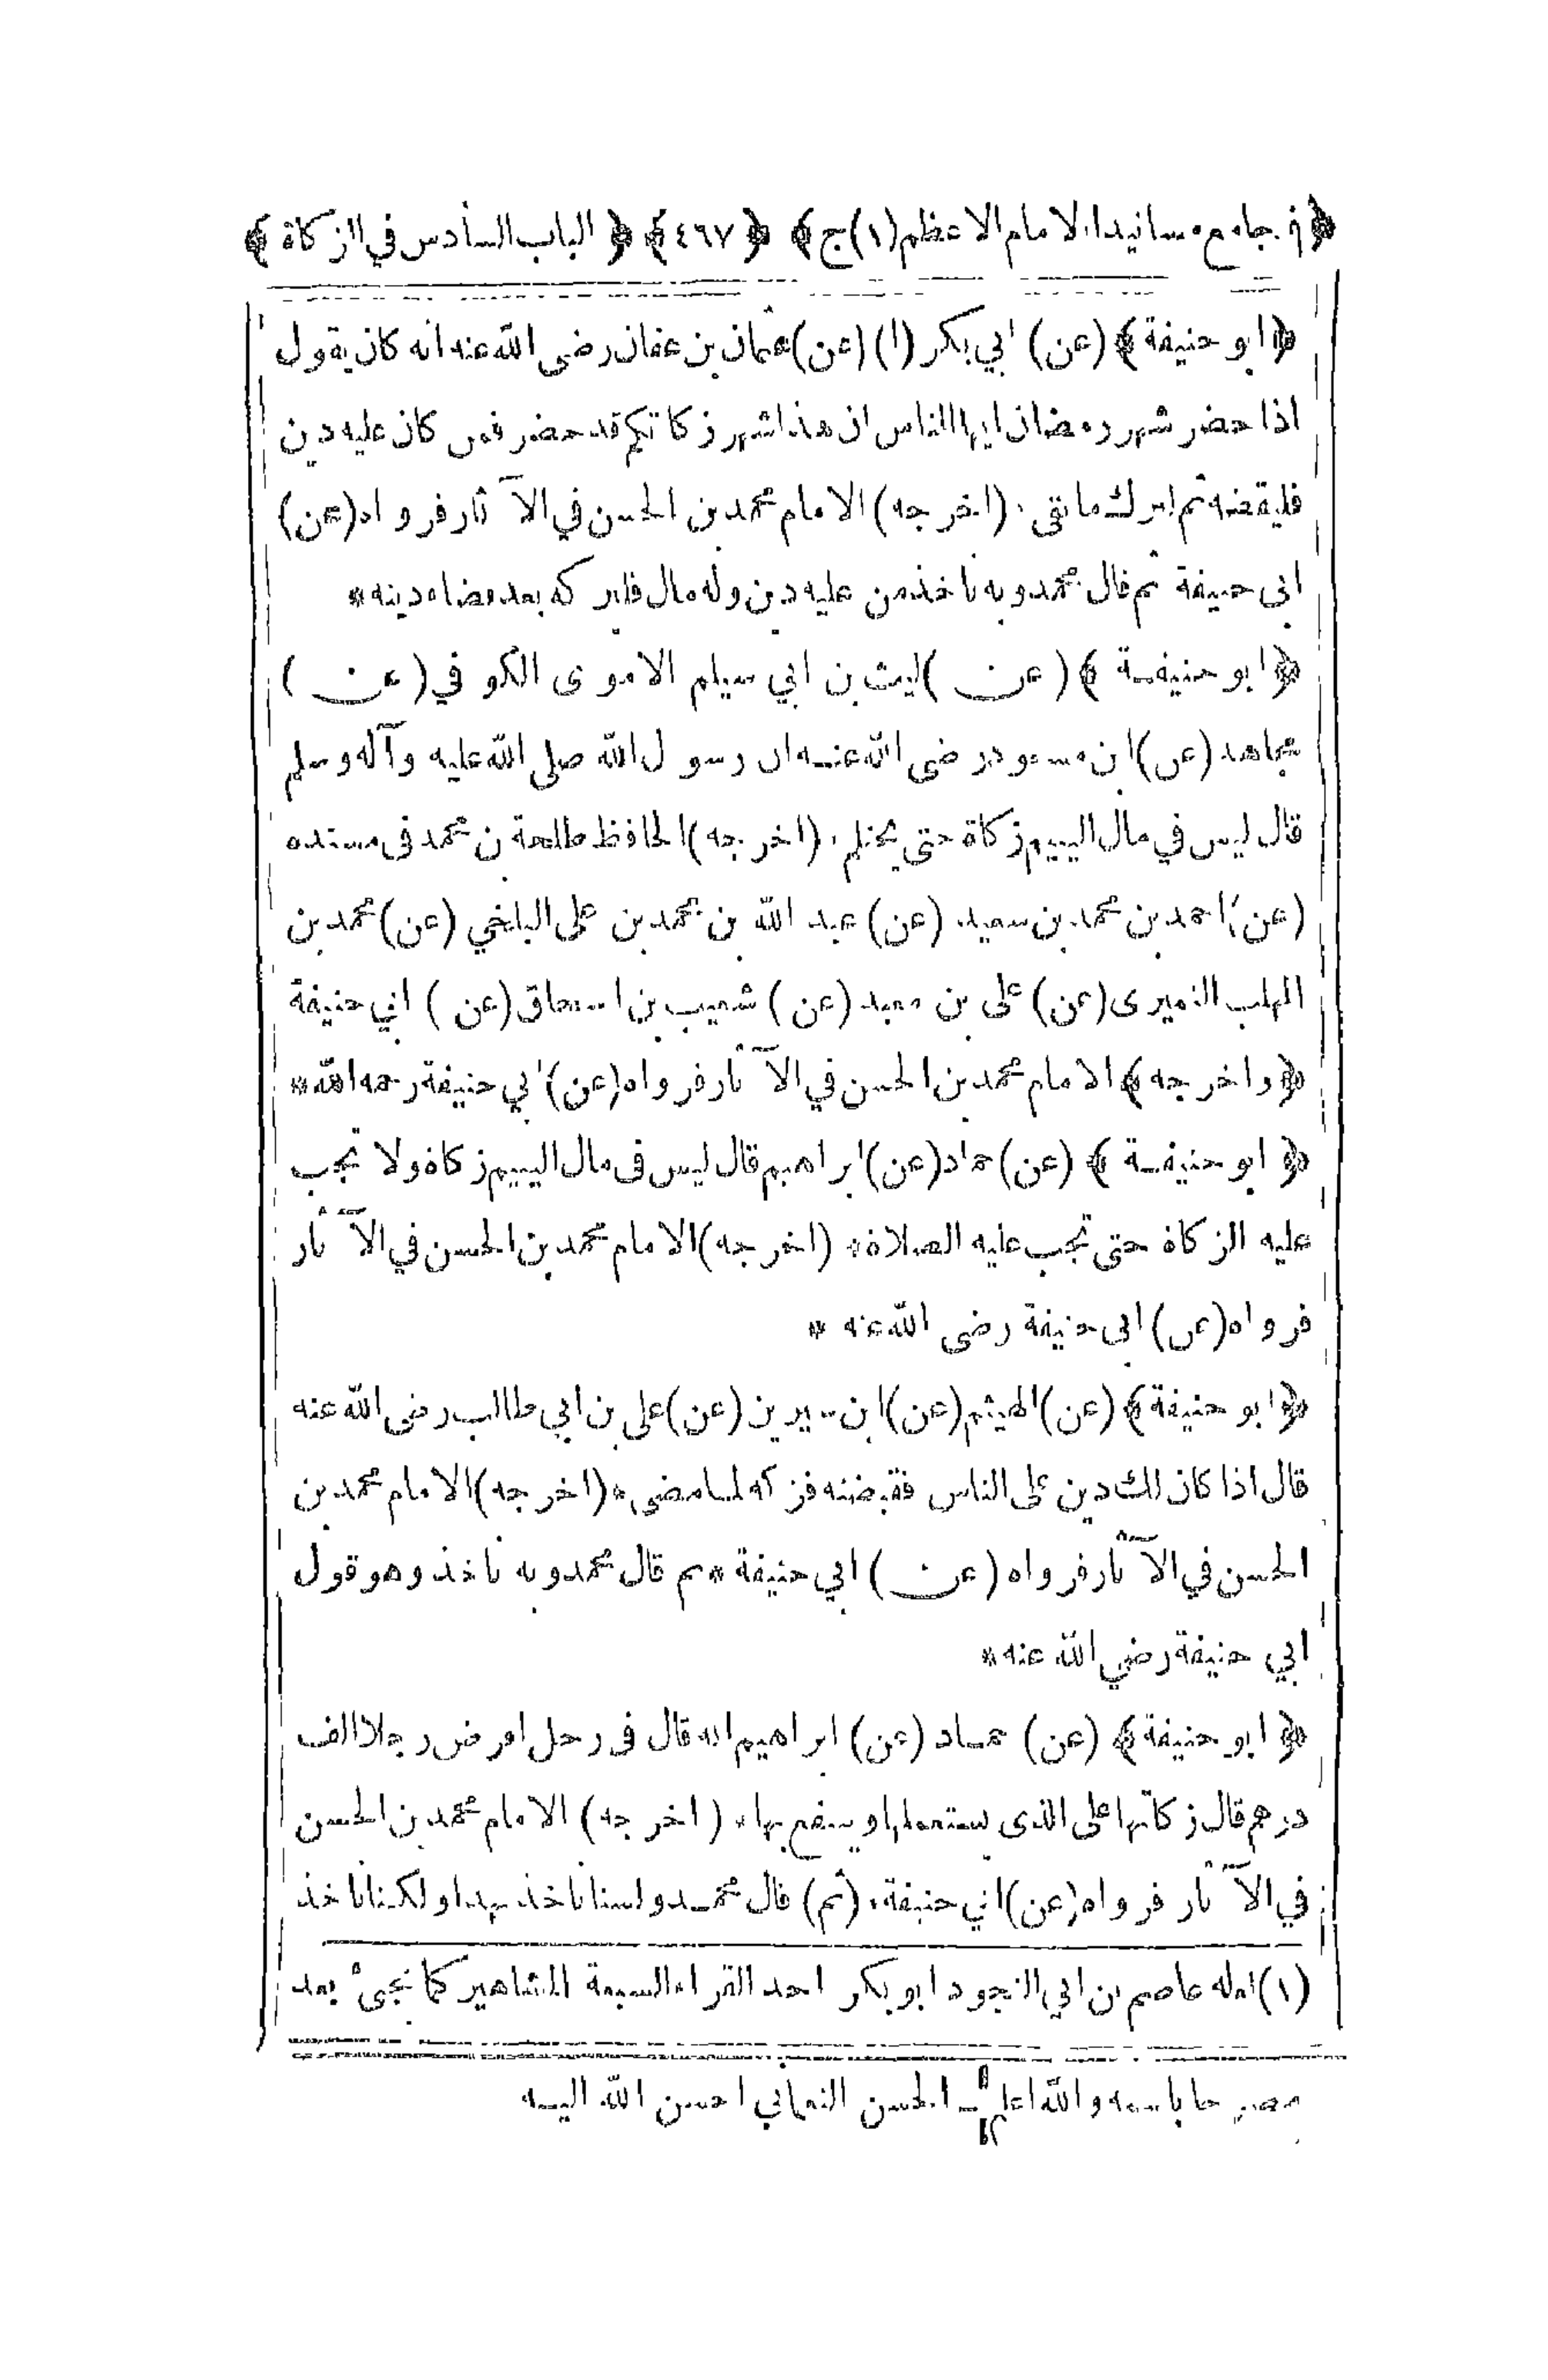 ﴿ جامع مسانيد الامام الاعظم (١) ج ﴾ ﴿ ٤٦٧ ﴾ ﴿ الباب السادس في الزكاة ﴾
﴿ ابو حنيفة ﴾ (عن) ابي بكر (١) (عن) عثمان بن عفان رضى الله عنه انه كان يقول
اذا حضر شهر رمضان ايها الناس ان هذا شهر زكاتكم قد حضر فمن كان عليه دين
فليقضه ثم ليزك ما بقى * (اخرجه) الامام محمد بن الحسن في الآثار فرواه (عن)
ابى حنيفة ثم قال محمد وبه ناخذ من عليه دين وله مال فليزكه بعد قضاء دينه *
﴿ ابو حنيفة ﴾ (عن) ليث بن ابي سليم الاموى الكوفي (عن)
مجاهد (عن) ابن مسعود رضى الله عنه ان رسول الله صلى الله عليه وآله وسلم
قال ليس في مال اليتيم زكاة حتى يحتلم * (اخرجه) الحافظ طلحة بن محمد فى مسنده
(عن) احمد بن محمد بن سعيد (عن) عبد الله بن محمد بن على البلخي (عن) محمد بن
المهلب النميرى (عن) على بن معبد (عن) شعيب بن اسحاق (عن) ابي حنيفة
﴿ واخرجه ﴾ الامام محمد بن الحسن في الآثار فرواه (عن) ابي حنيفة رحمه الله *
﴿ ابو حنيفة ﴾ (عن) حماد (عن) ابراهيم قال ليس فى مال اليتيم زكاة ولا تجب
عليه الزكاة حتى تجب عليه الصلاة * (اخرجه) الامام محمد بن الحسن في الآثار
فرواه (عن) ابى حنيفة رضى الله عنه *
﴿ ابو حنيفة ﴾ (عن) الهيثم (عن) ابن سيرين (عن) على بن ابي طالب رضى الله عنه
قال اذا كان لك دين على الناس فقبضته فزكه لما مضى * (اخرجه) الامام محمد بن
الحسن في الآثار فرواه (عن) ابي حنيفة * ثم قال محمد وبه ناخذ وهو قول
ابي حنيفة رضي الله عنه *
﴿ ابو حنيفة ﴾ (عن) حماد (عن) ابراهيم انه قال فى رجل اقرض رجلا الف
درهم قال زكاتها على الذى يستعملها وينتفع بها * (اخرجه) الامام محمد بن الحسن
في الآثار فرواه (عن) ابي حنيفة * (ثم) قال محمد ولسنا ناخذ بهذا ولكنا ناخذ
(١) لعله عاصم بن ابي النجود ابو بكر احد القراء السبعة المشاهير كما يجيء بعد
مصرحا باسمه والله اعلم الحسن النعماني احسن الله اليه